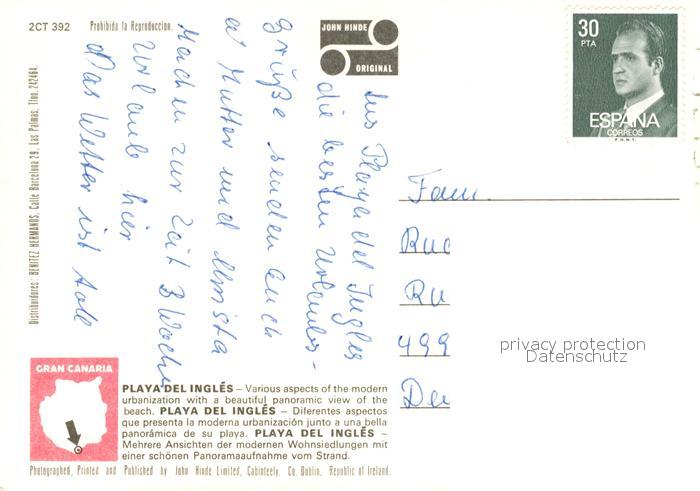 2CT 392
Prohibida la Reproduccion.
JOHN HINDE
ORIGINAL
30
PTA
ESPAÑA
CORREOS
F.N.M.T.
Distribuidores: BENITEZ HERMANOS, Calle Barcelona 29. Las Palmas. Tfno. 242464.
Aus Playa del Ingles
die besten Urlaubs-
grüße senden Euch
Mutter und
Machen zur Zeit 3 Woche
Urlaub hier
Das Wetter ist toll
Fam.
Ru
499
privacy protection
Datenschutz
GRAN CANARIA
PLAYA DEL INGLÉS – Various aspects of the modern
urbanization with a beautiful panoramic view of the
beach. PLAYA DEL INGLÉS – Diferentes aspectos
que presenta la moderna urbanización junto a una bella
panorámica de su playa. PLAYA DEL INGLÉS –
Mehrere Ansichten der modernen Wohnsiedlungen mit
einer schönen Panoramaaufnahme vom Strand.
Photographed, Printed and Published by John Hinde Limited, Cabinteely, Co. Dublin, Republic of Ireland.